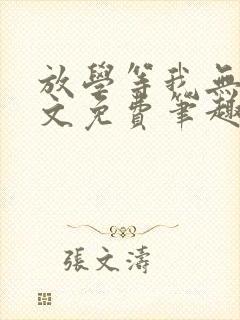 放學等我無
文免費筆趣
張文濤